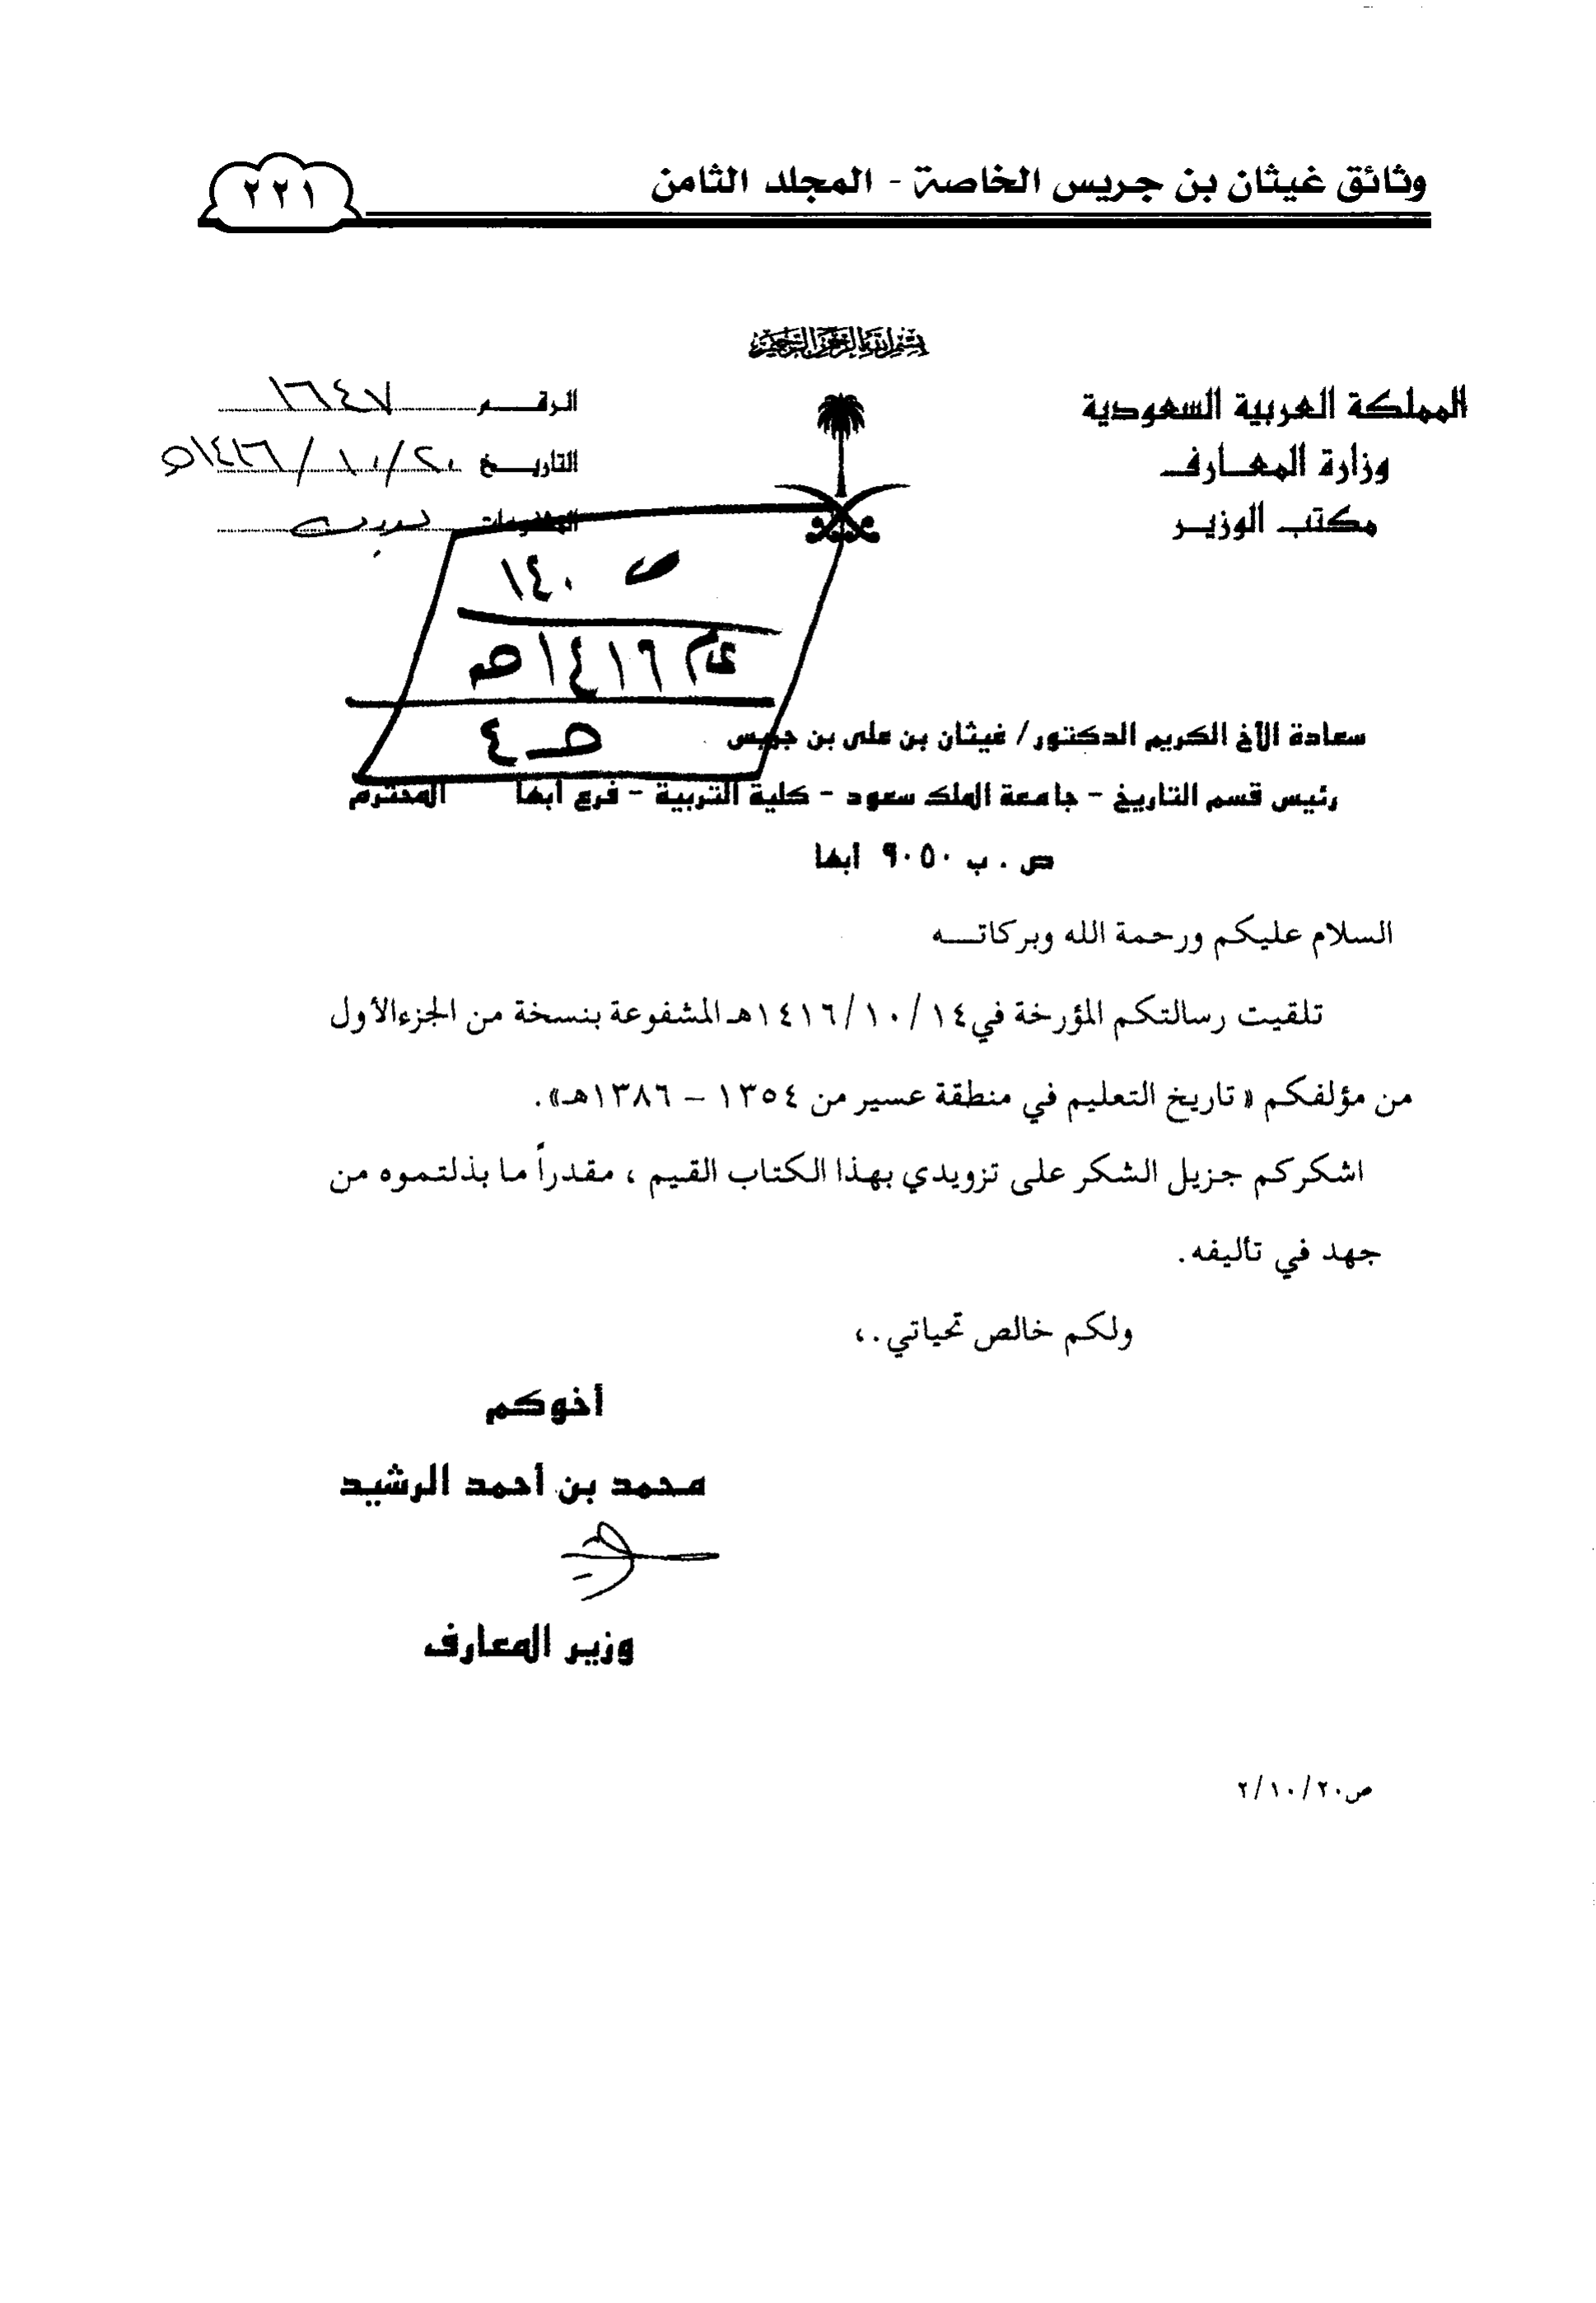 وثائق غيثان بن جريس الخاصة - المجلد الثامن
٢٢١
بسم الله الرحمن الرحيم
المملكة العربية السعودية
وزارة المعارف
مكتب الوزير
الرقم ١٦٤٧
التاريخ ٢٠/١٠/١٤١٦هـ
المشفوعات بدون
ص ١٤٠
عام ١٤١٦هـ
سعادة الأخ الكريم الدكتور/ غيثان بن علي بن جريس
رئيس قسم التاريخ - جامعة الملك سعود - كلية التربية - فرع أبها المحترم
ص . ب ٩٠٥٠ أبها
السلام عليكم ورحمة الله وبركاته
تلقيت رسالتكم المؤرخة في ١٤١٦/١٠/١٤هـ المشفوعة بنسخة من الجزء الأول
من مؤلفكم « تاريخ التعليم في منطقة عسير من ١٣٥٤ – ١٣٨٦هـ».
اشكركم جزيل الشكر على تزويدي بهذا الكتاب القيم ، مقدراً ما بذلتموه من
جهد في تأليفه.
ولكم خالص تحياتي.،
أخوكم
محمد بن أحمد الرشيد
وزير المعارف
ص٢/١٠/٢٠